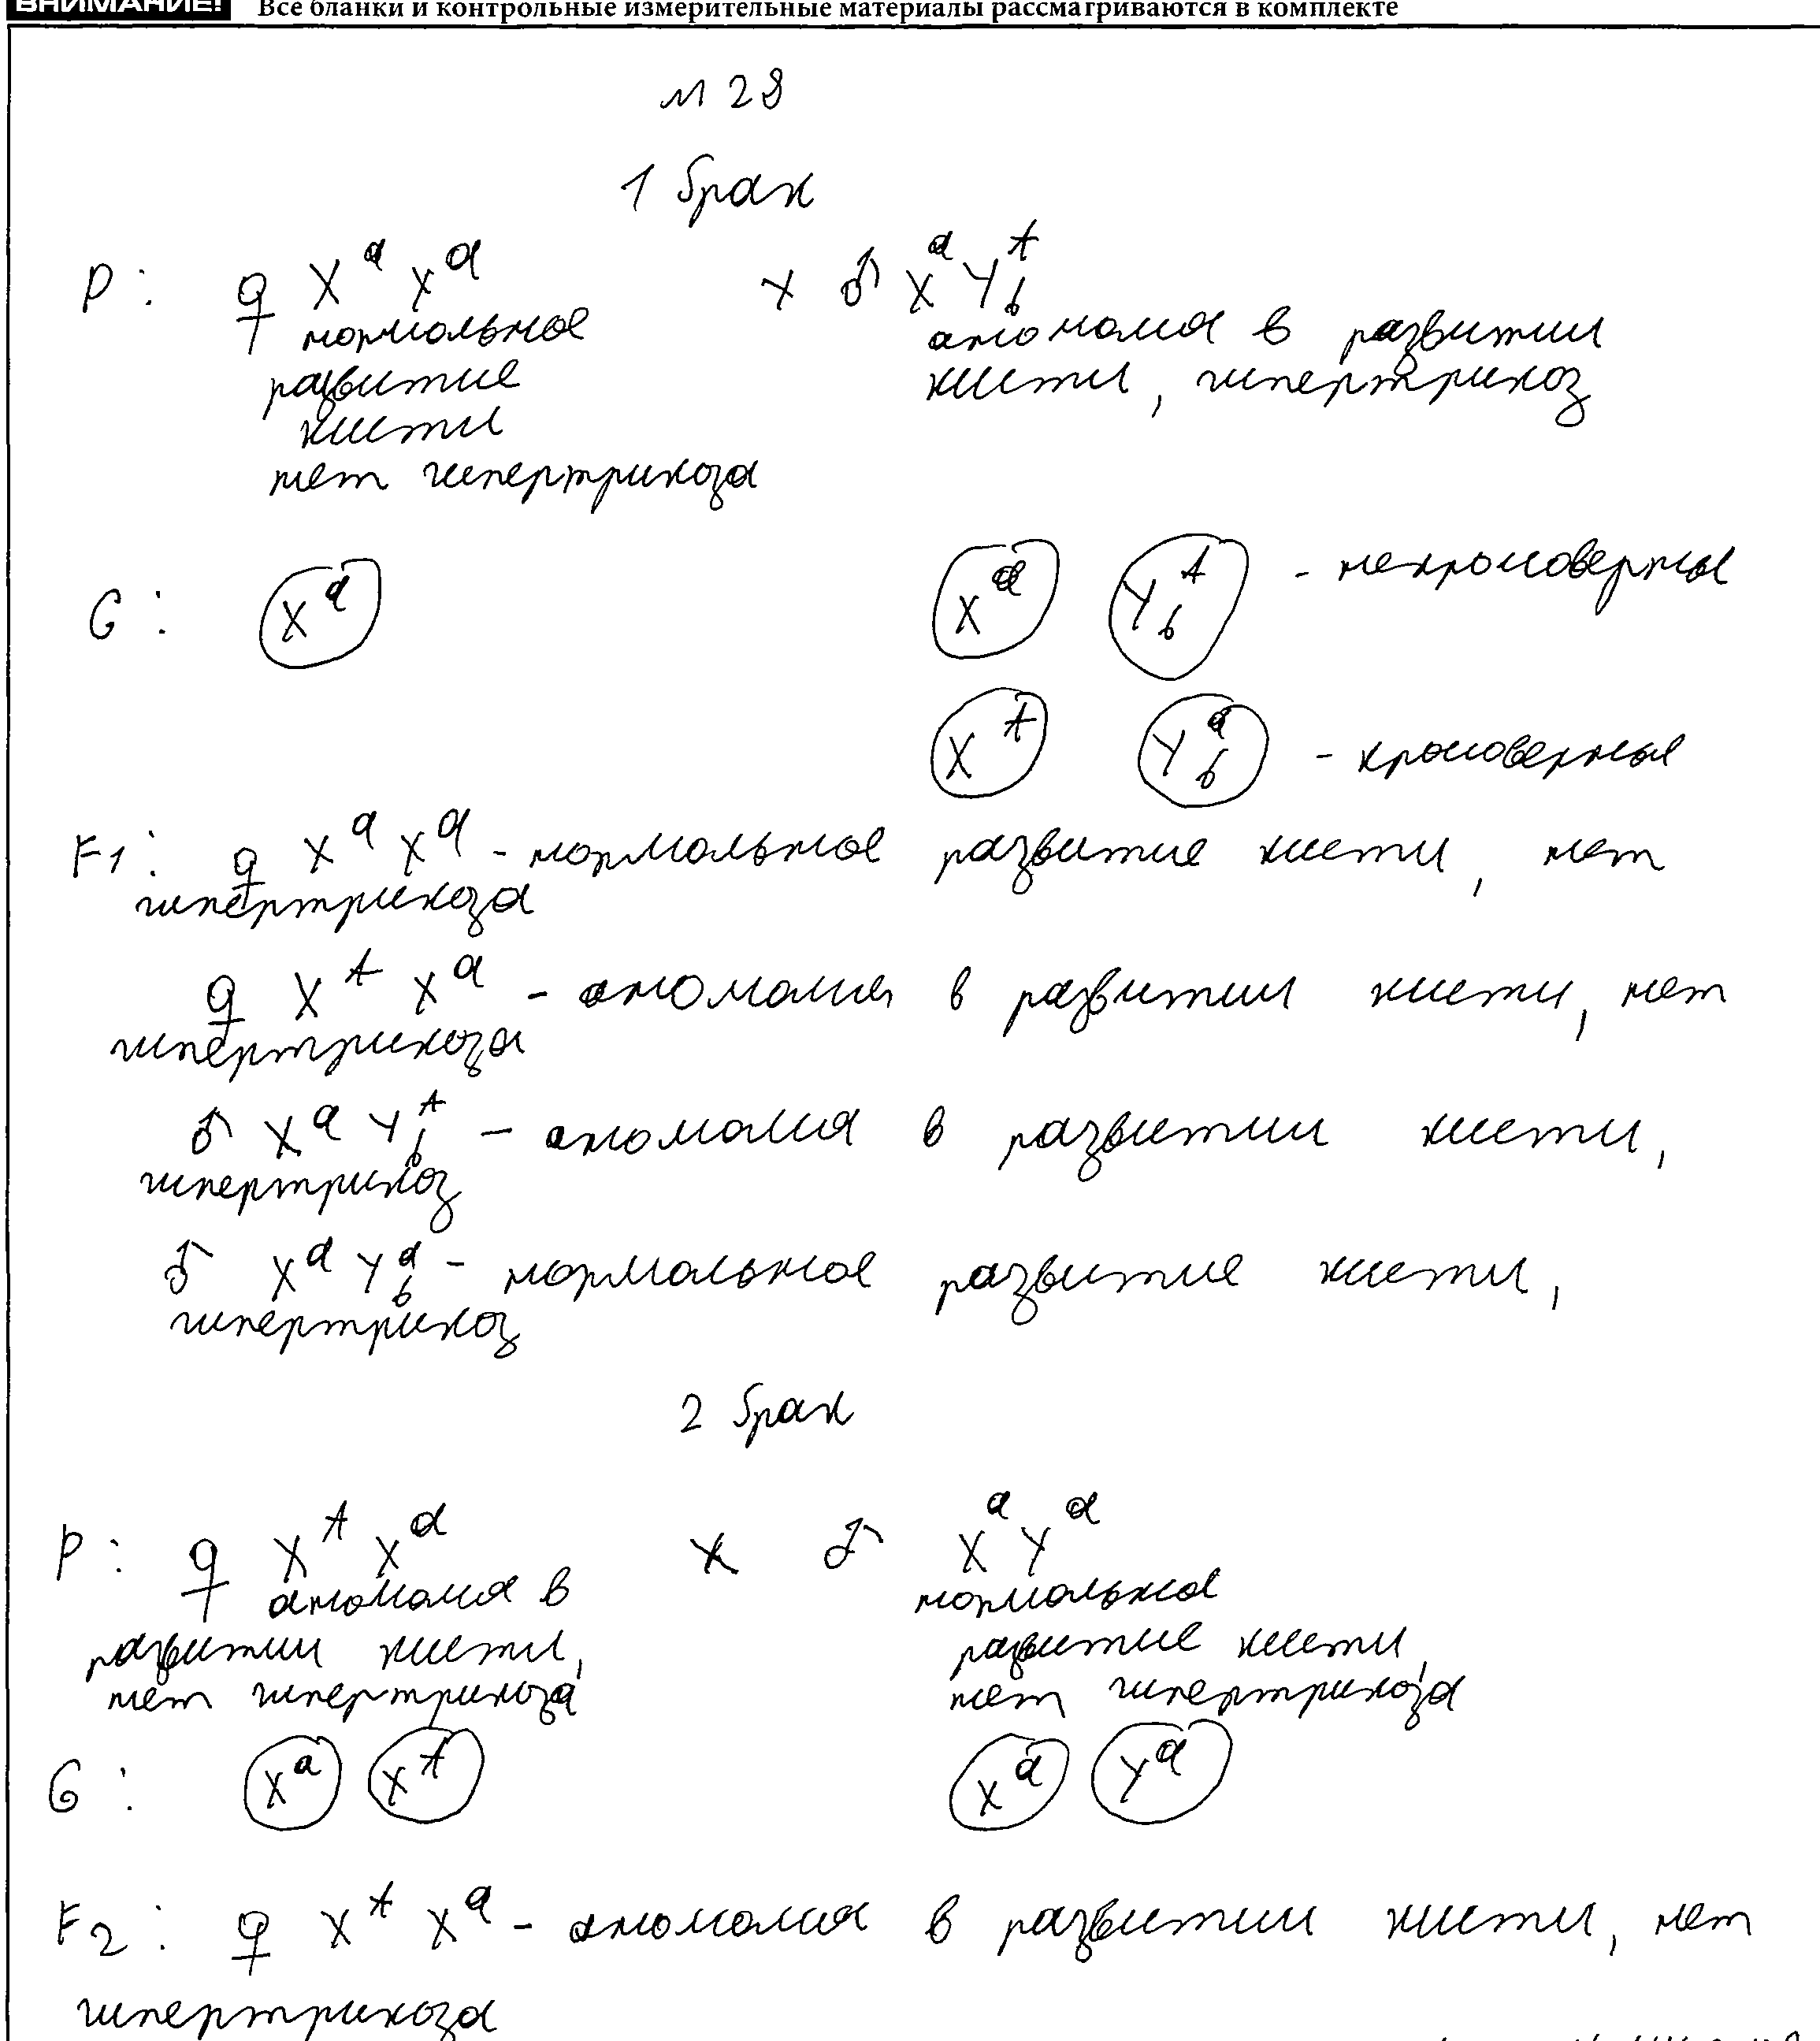 ВНИМАНИЕ! Все бланки и контрольные измерительные материалы рассматриваются в комплекте
№ 28
1 брак
P: ♀ Xᵃ Xᵃ × ♂ Xᵃ Yᴬ_b
нормальное аномалия в развитии
развитие кисти, гипертрихоз
кисти
нет гипертрихоза
G: Xᵃ Xᵃ Yᴬ_b - некроссоверные
Xᴬ Yᵃ_b - кроссоверные
F1: ♀ Xᵃ Xᵃ - нормальное развитие кисти, нет
гипертрихоза
♀ Xᴬ Xᵃ - аномалия в развитии кисти, нет
гипертрихоза
♂ Xᵃ Yᴬ_b - аномалия в развитии кисти,
гипертрихоз
♂ Xᵃ Yᵃ_b - нормальное развитие кисти,
гипертрихоз
2 брак
P: ♀ Xᴬ Xᵃ × ♂ Xᵃ Yᵃ
аномалия в нормальное
развитии кисти, развитие кисти,
нет гипертрихоза нет гипертрихоза
G: Xᵃ Xᴬ Xᵃ Yᵃ
F2: ♀ Xᴬ Xᵃ - аномалия в развитии кисти, нет
гипертрихоза